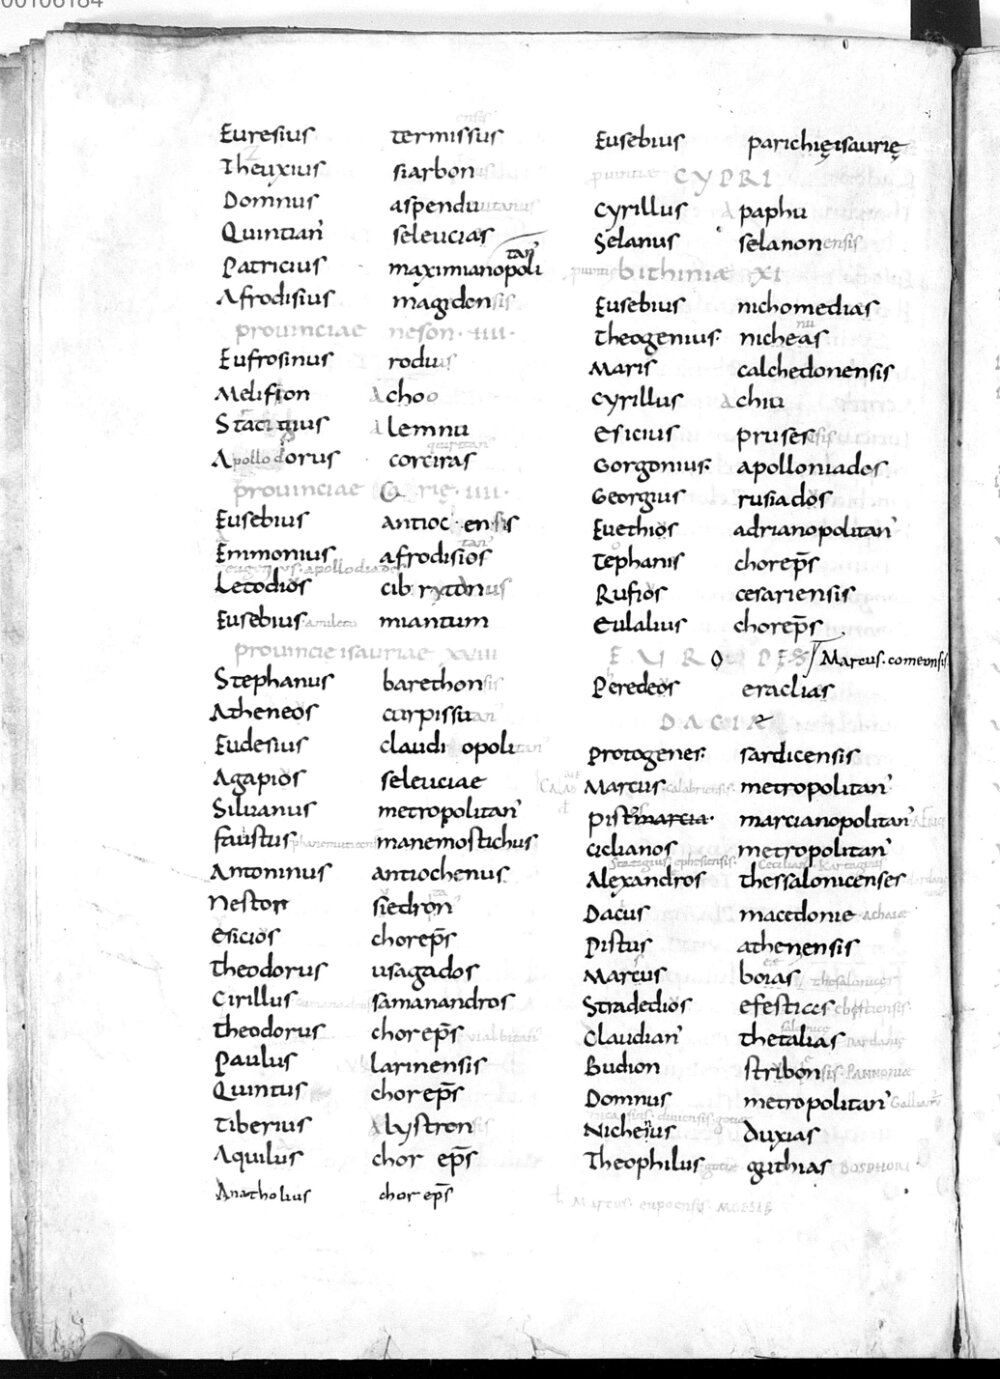 00106184
Euresius termissus
Theuxius siarbon
Domnus aspendu
Quintian̄ seleucias
Patricius maximianopoli tan̄
Afrodisius magidensis
prouinciae neson · IIII ·
Eufrosinus rodu
Melifion Achoo
Stategius Alemnu
Apollodorus corciras
prouinciae Ca rię · IIII ·
Eusebius antioc ensis
Emmonius afrodisios
eugenius · apollodiados
Letodios cib ryton
Eusebius a mileto miantum
prouincie isauriae XXIII
Stephanus barethonsis
Atheneos curpissu
Eudesius claudi opoli
Agapios seleuciae
Siluanus metropolitan̄
faustus manemostichus
Antoninus antiochenus
Nestor siedron̄
Esicios chorep̄s
Theodorus usagados
Cirillus samanandros
Theodorus chorep̄s
Paulus larinensis
Quintus chorep̄s
Tiberius Alystron
Aquilus chor ep̄s
Anatholius chor ep̄s
Eusebius parichię isaurię
CYPRI
Cyrillus A paphu
Selanus selanonensis
bithiniae XI
Eusebius nichomedias
Theogenius nicheas
Maris calchedonensis
Cyrillus Achiu
Esicius pruses
Gorgonius apolloniados
Georgius rusiados
Euethios adrianopolitan̄
Tephanis chorep̄s
Rufios cesariensis
Eulalius chorep̄s
EUROPES Marcus · comeonsis
Peredeos eraclias
DACIAE
Protogenes sardicensis
Marcus calabriensis metropolitan̄
Piste marcia · marcianopolitan̄
Ciclianos metropolitan̄
Strategius ephesiensis · Cecilian̄ Kartaginis
Alexandros thessalonicenses
Dacus macedonie Achaiae
Pistus athenensis
Marcus boias
Stradedios efestices
Claudian̄ thetalias Dardania
Budion stribonsis · PANNONIAE
Domnus metropolitan̄ Galliarū
Nicheius duxias
Theophilus guthias BOSPHORI
Marcus · eupoensis · MOESIE